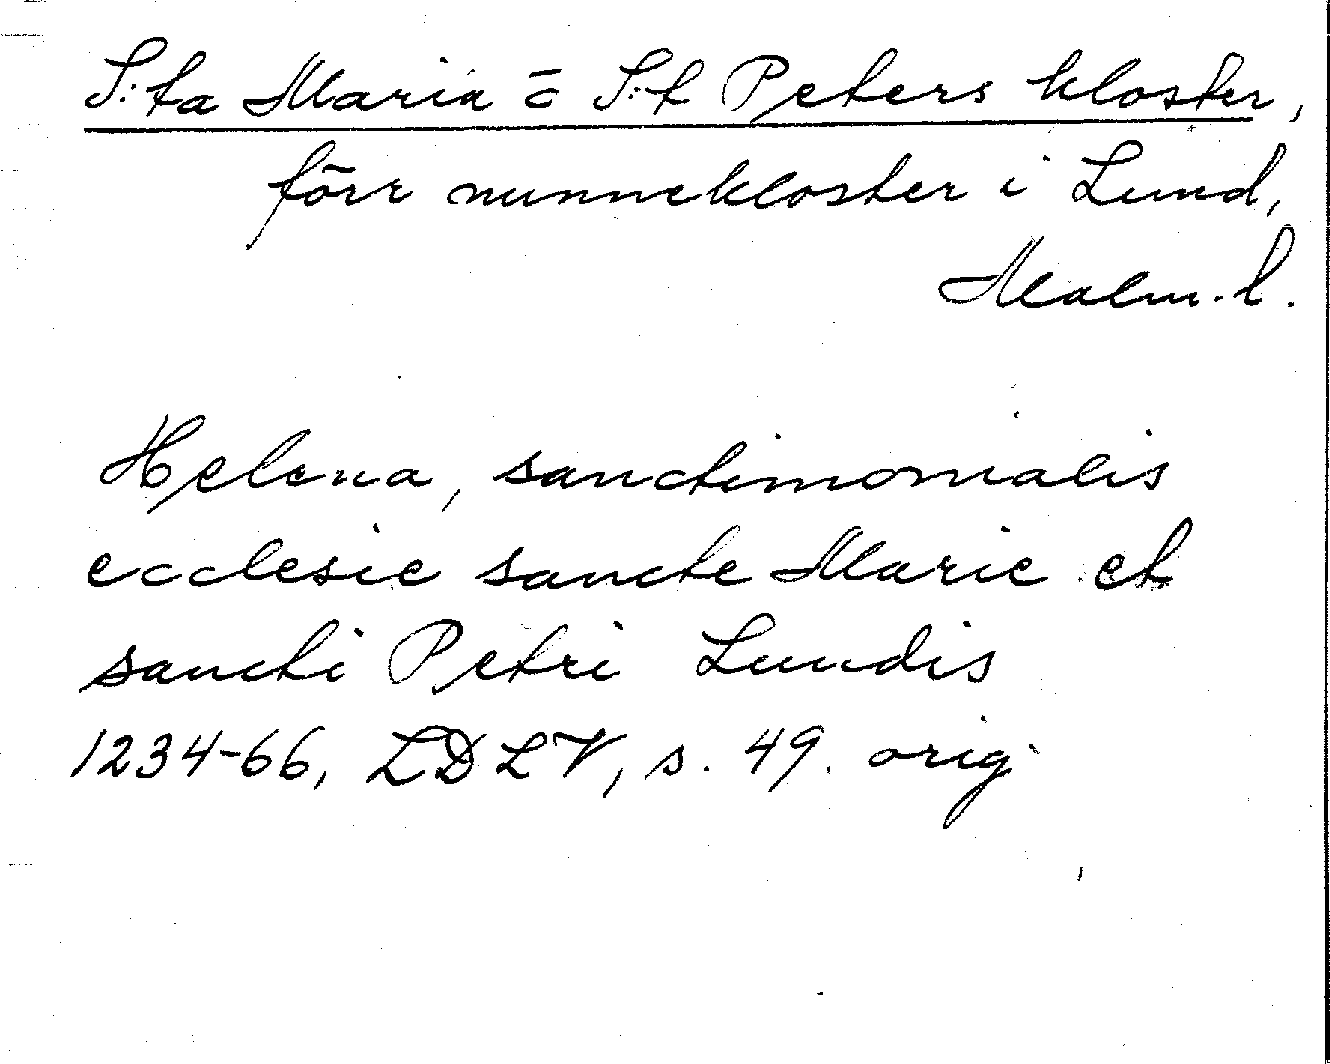 S:ta Maria o S:t Peters kloster,
förr nunnekloster i Lund,
Malm. l.
Helena, sanctimonialis
ecclesie sancte Marie et
sancti Petri Lundis
1234-66, LDLV, s. 49. orig.